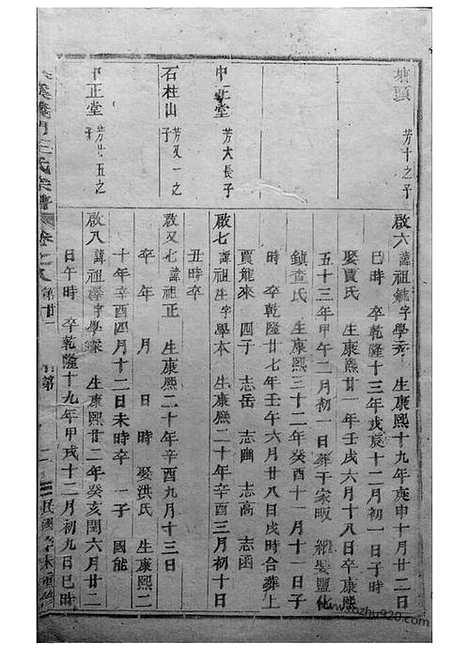 塘頭 芳十之子
啟六 諱祖 字學 生康熙十九年庚申十月廿二日
巳時 卒乾隆十三年戊辰十二月初一日子時
娶賈氏 生康熙廿一年壬戌六月十八日卒康熙
五十三年甲午二月初一日葬于家畈 繼娶鹽化
鎮查氏 生康熙三十二年癸酉十一月十一日子
時 卒乾隆廿七年壬午六月廿八日戌時合葬上
賈龍來 四子 志岳 志 志高 志函
中正堂 芳大長子
啟七 諱祖生字學本 生康熙二十年辛酉三月初十日
丑時卒
石柱山 芳又一之子
啟又七 諱祖正 生康熙二十年辛酉九月十三日
卒 年 月 日 時 娶洪氏 生康熙二
十年辛酉四月十二日未時卒 一子 國能
中正堂 芳廿五之子
啟八 諱祖澤字學 生康熙廿二年癸亥閏六月廿二
日午時 卒乾隆十九年甲戌十二月初九日巳時
義門王氏宗譜 卷之八 第廿一
民國辛未重修
www.zhuhu920.com